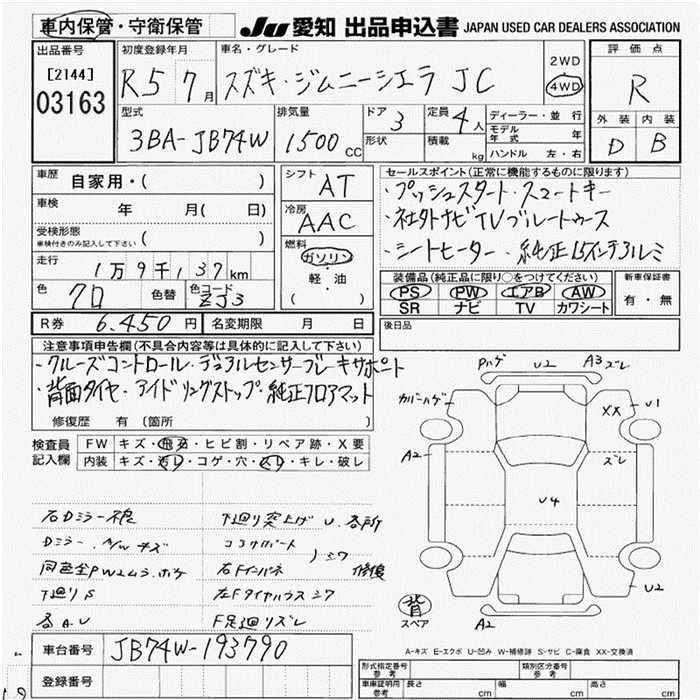 車内保管・守衛保管
JU 愛知 出品申込書 JAPAN USED CAR DEALERS ASSOCIATION
出品番号
[2144]
03163
初度登録年月
R5 7月
車名・グレード
スズキ・ジムニーシエラ JC
2WD
4WD
評価点
R
外装 内装
D B
型式
3BA-JB74W
排気量
1500 CC
ドア 3
形状
定員 4人
積載 kg
ディーラー・並行
モデル年式 年
ハンドル 左・右
車歴
自家用・( )
車検
年 月( 日)
受検形態
車検付きのみ記入して下さい ( )
走行
1万9千137km
色
クロ
色替
色コード
ZJ3
R券 6,450円
名変期限 月 日
シフト
AT
冷房
AAC
燃料
ガソリン
軽・油
( )
セールスポイント(正常に機能するものに限ります)
・プッシュスタート・スマートキー
・社外ナビTVブルートゥース
・シートヒーター・純正15インチアルミ
装備品(純正品に限り○をつけてください)
PS PW エアB AW
SR ナビ TV カワシート
新車保証書
有・無
後日品
注意事項申告欄(不具合内容等は具体的に記入して下さい)
・クルーズコントロール・デュアルセンサーブレーキサポート
・背面タイヤ・アイドリングストップ・純正フロアマット
修復歴 有 〔箇所 〕
検査員
記入欄
FW キズ・飛石・ヒビ割・リペア跡・X要
内装 キズ・汚レ・コゲ・穴・スレ・キレ・破レ
右Dミラー不良
Dミラー、A/W キズ
下廻りS
各AU
下廻り突上げU各所
コアサポート
右Fインパネ
シワ
修復
左Fタイヤハウスシワ
F足廻りズレ
Pハゲ U2 A3 ズレ
カバーハゲ
XX U1
A2 ズレ
U4
U2
A2
背
スペア
A-キズ E-エクボ U-凹み W-補修跡 S-サビ C-腐食 XX-交換済
車台番号
JB74W-193790
登録番号
形式指定番号 参考
類別区分番号 参考
車庫証明用 参考
長さ cm
幅 cm
高さ cm